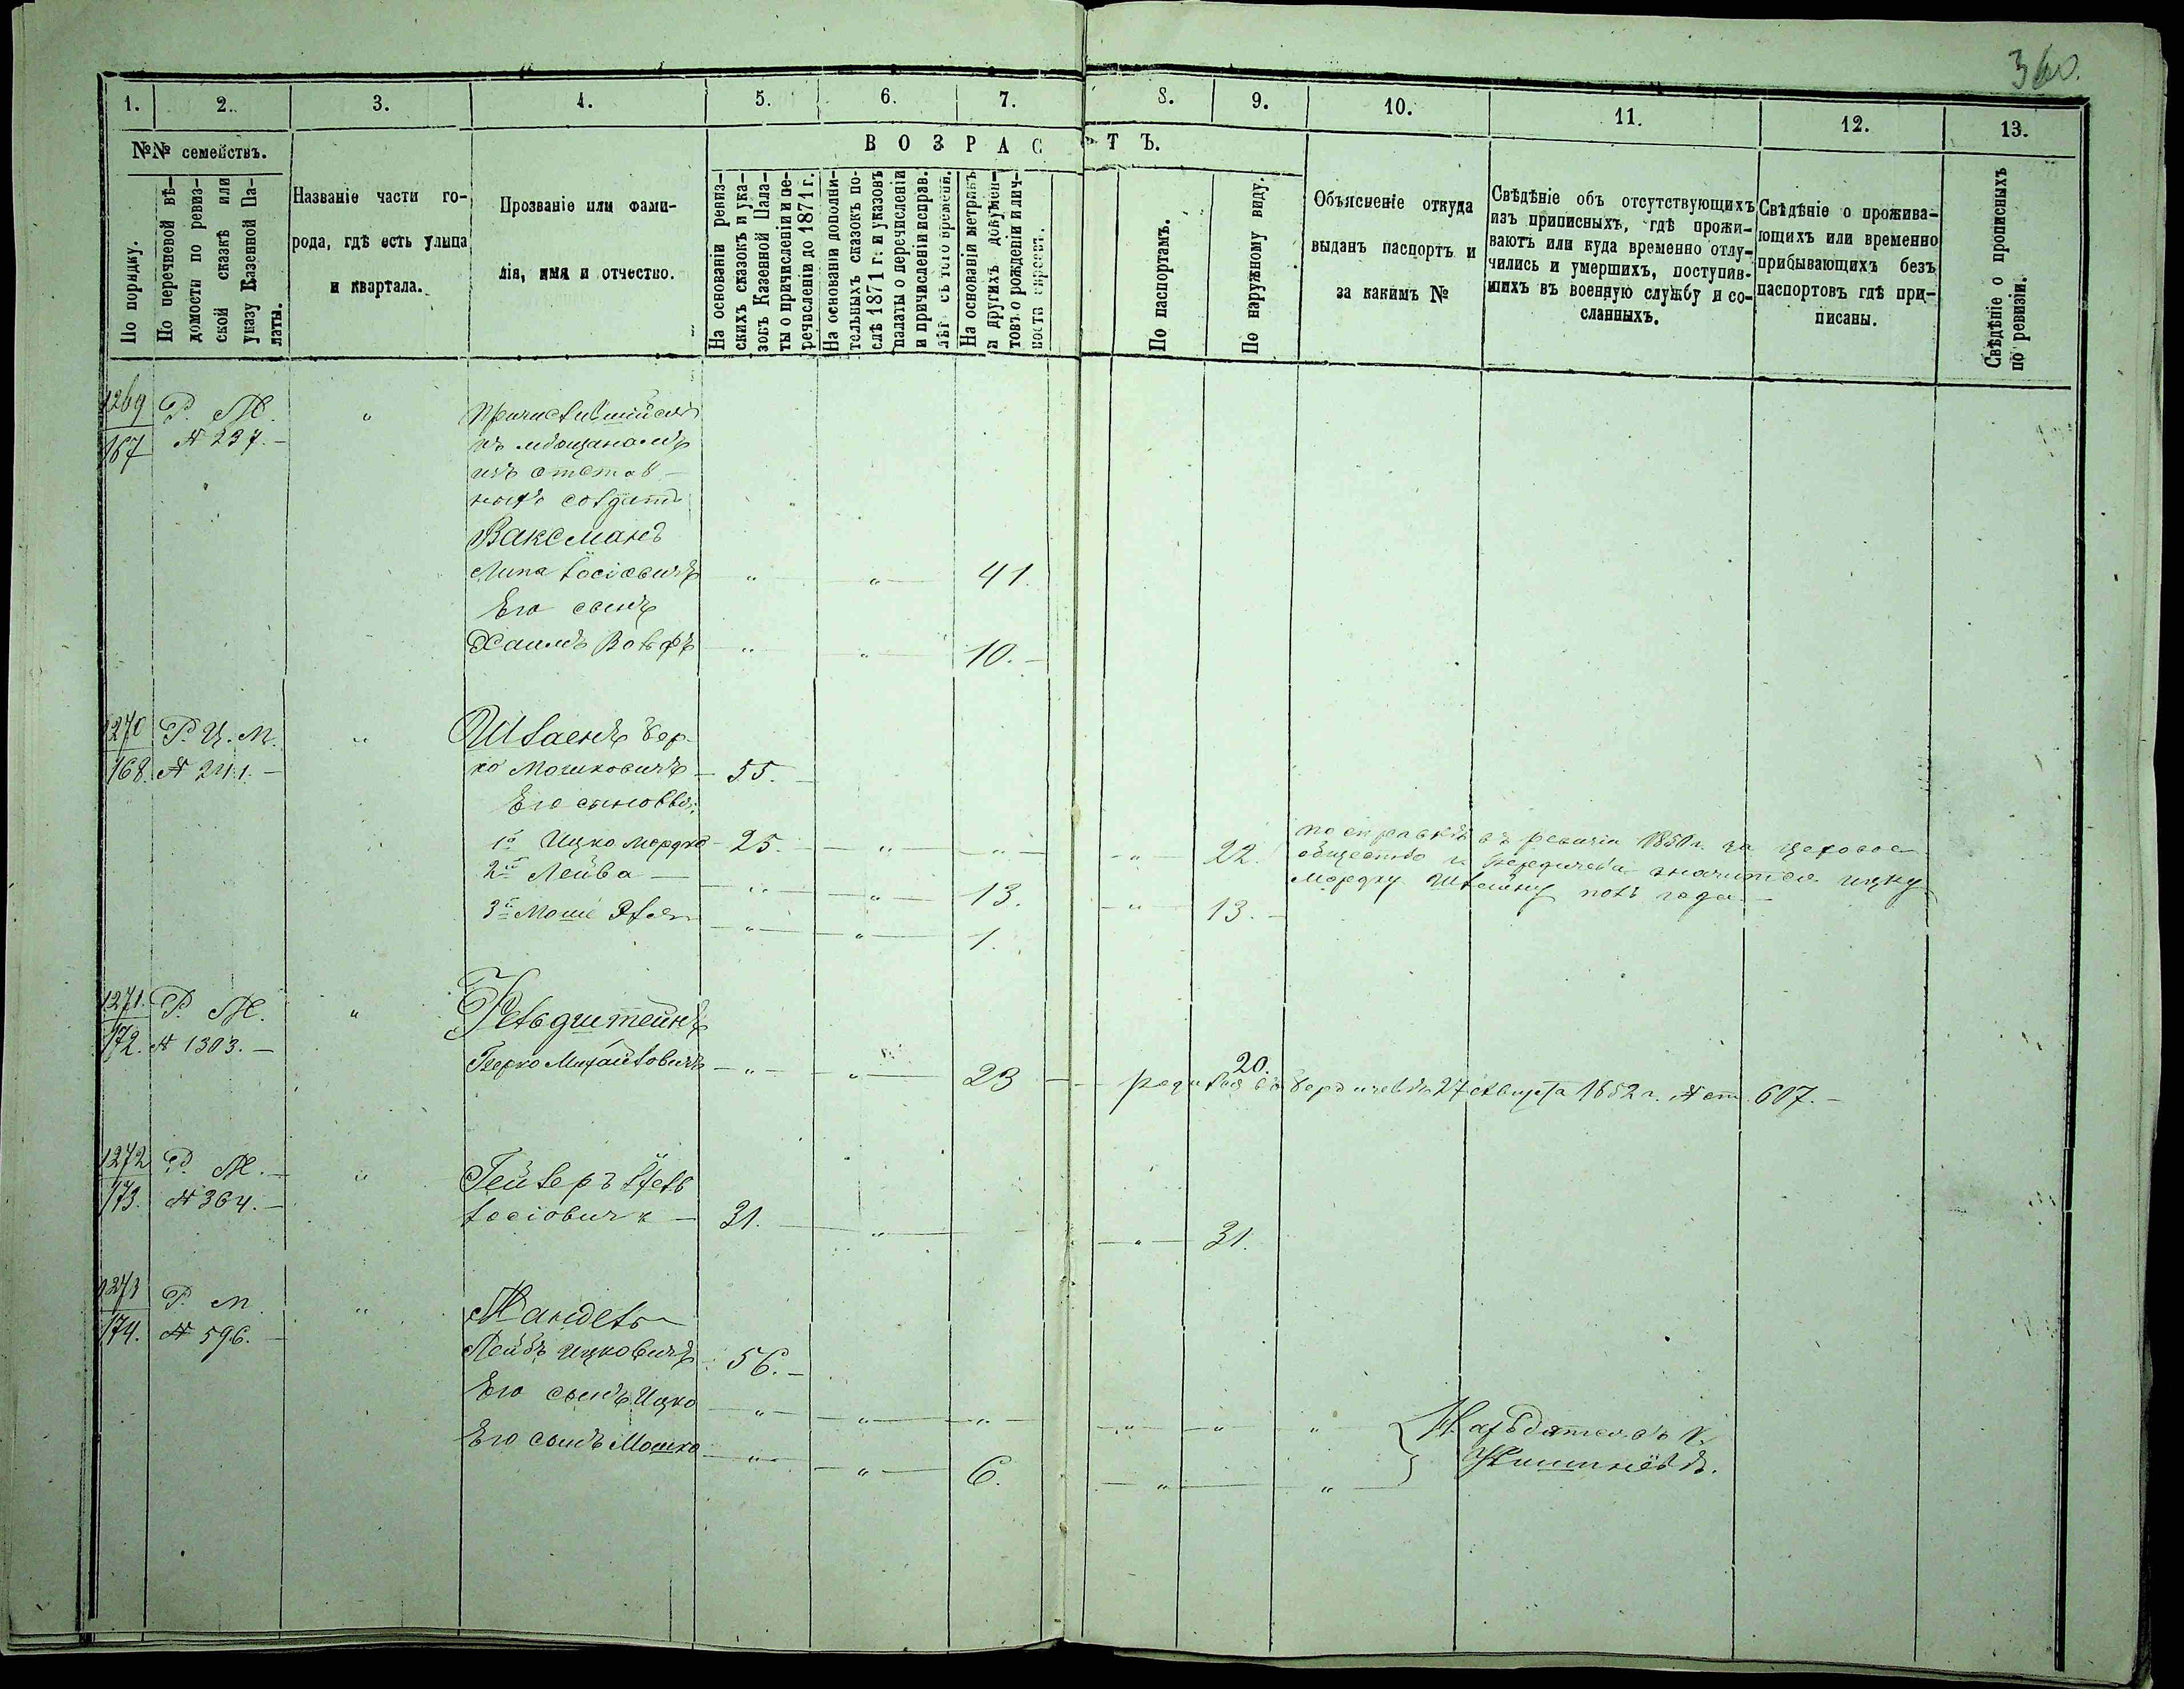 360.
1. 2. 3. 4. 5. 6. 7. 8. 9. 10. 11. 12. 13.
№№ семействъ.
По порядку.
По перечневой вѣ-
домости по ревиз-
ской сказкѣ или
указу Казенной Па-
латы.
Названіе части го-
рода, гдѣ есть улица
и квартала.
Прозваніе или фами-
лія, имя и отчество.
ВОЗРАСТЪ.
На основаніи ревиз-
скихъ сказокъ и ука-
зовъ Казенной Пала-
ты о причисленіи и пе-
речисленіи до 1871 г.
На основаніи дополни-
тельныхъ сказокъ по-
слѣ 1871 г. и указовъ
палаты о перечисленіи
и причисленіи исправ.
лѣт съ того времени.
На основаніи метрикъ
и другихъ докумен-
товъ о рожденіи и лич-
ности
По паспортамъ.
По наружному виду.
Объясненіе откуда
выданъ паспортъ и
за какимъ №
Свѣдѣніе объ отсутствующихъ
изъ приписныхъ, гдѣ прожи-
ваютъ или куда временно отлу-
чились и умершихъ, поступив-
шихъ въ военную службу и со-
сланныхъ.
Свѣдѣніе о прожива-
ющихъ или временно
прибывающихъ безъ
паспортовъ гдѣ при-
писаны.
Свѣдѣніе о прописныхъ
по ревизіи.
1269 Р. М. "
167 № 237.
къ мѣщанамъ
изъ отстав-
ныхъ солдатъ
Ваксманъ
Липа Іосіовичъ " " 41.
Его сынъ
Хаимъ Вольфъ " " 10.
1270 Р. Ц. М. " Штаенъ Бер-
168. № 241. ко Мошковичъ 55.
Его сыновья:
1й Ицко Мордко 25. " " " 22.
по справкѣ въ ревизіи 1850 г. за цеховое
общество г. Бердичева значится Ицку
Мордку Штейну полъ года.
2й Лейба " " 13. " 13.
3й Моше " " 1.
1271. Р. М. " Гельдштейнъ
172. № 1303. Берко Михайловичъ " " 23 20.
родился въ Бердичевѣ 27 августа 1852 г. № ст. 607.
1272 Р. М. " Гейлеръ
173. № 364. Іосіовичъ 31. " " 31.
1273 Р. М. " Мандель
174. № 596. Лейбъ Ицковичъ 56.
Его сынъ Ицко " " " " " "
Его сынъ Мошко " " 6. " "
Находятся въ г.
Кишинёвѣ.